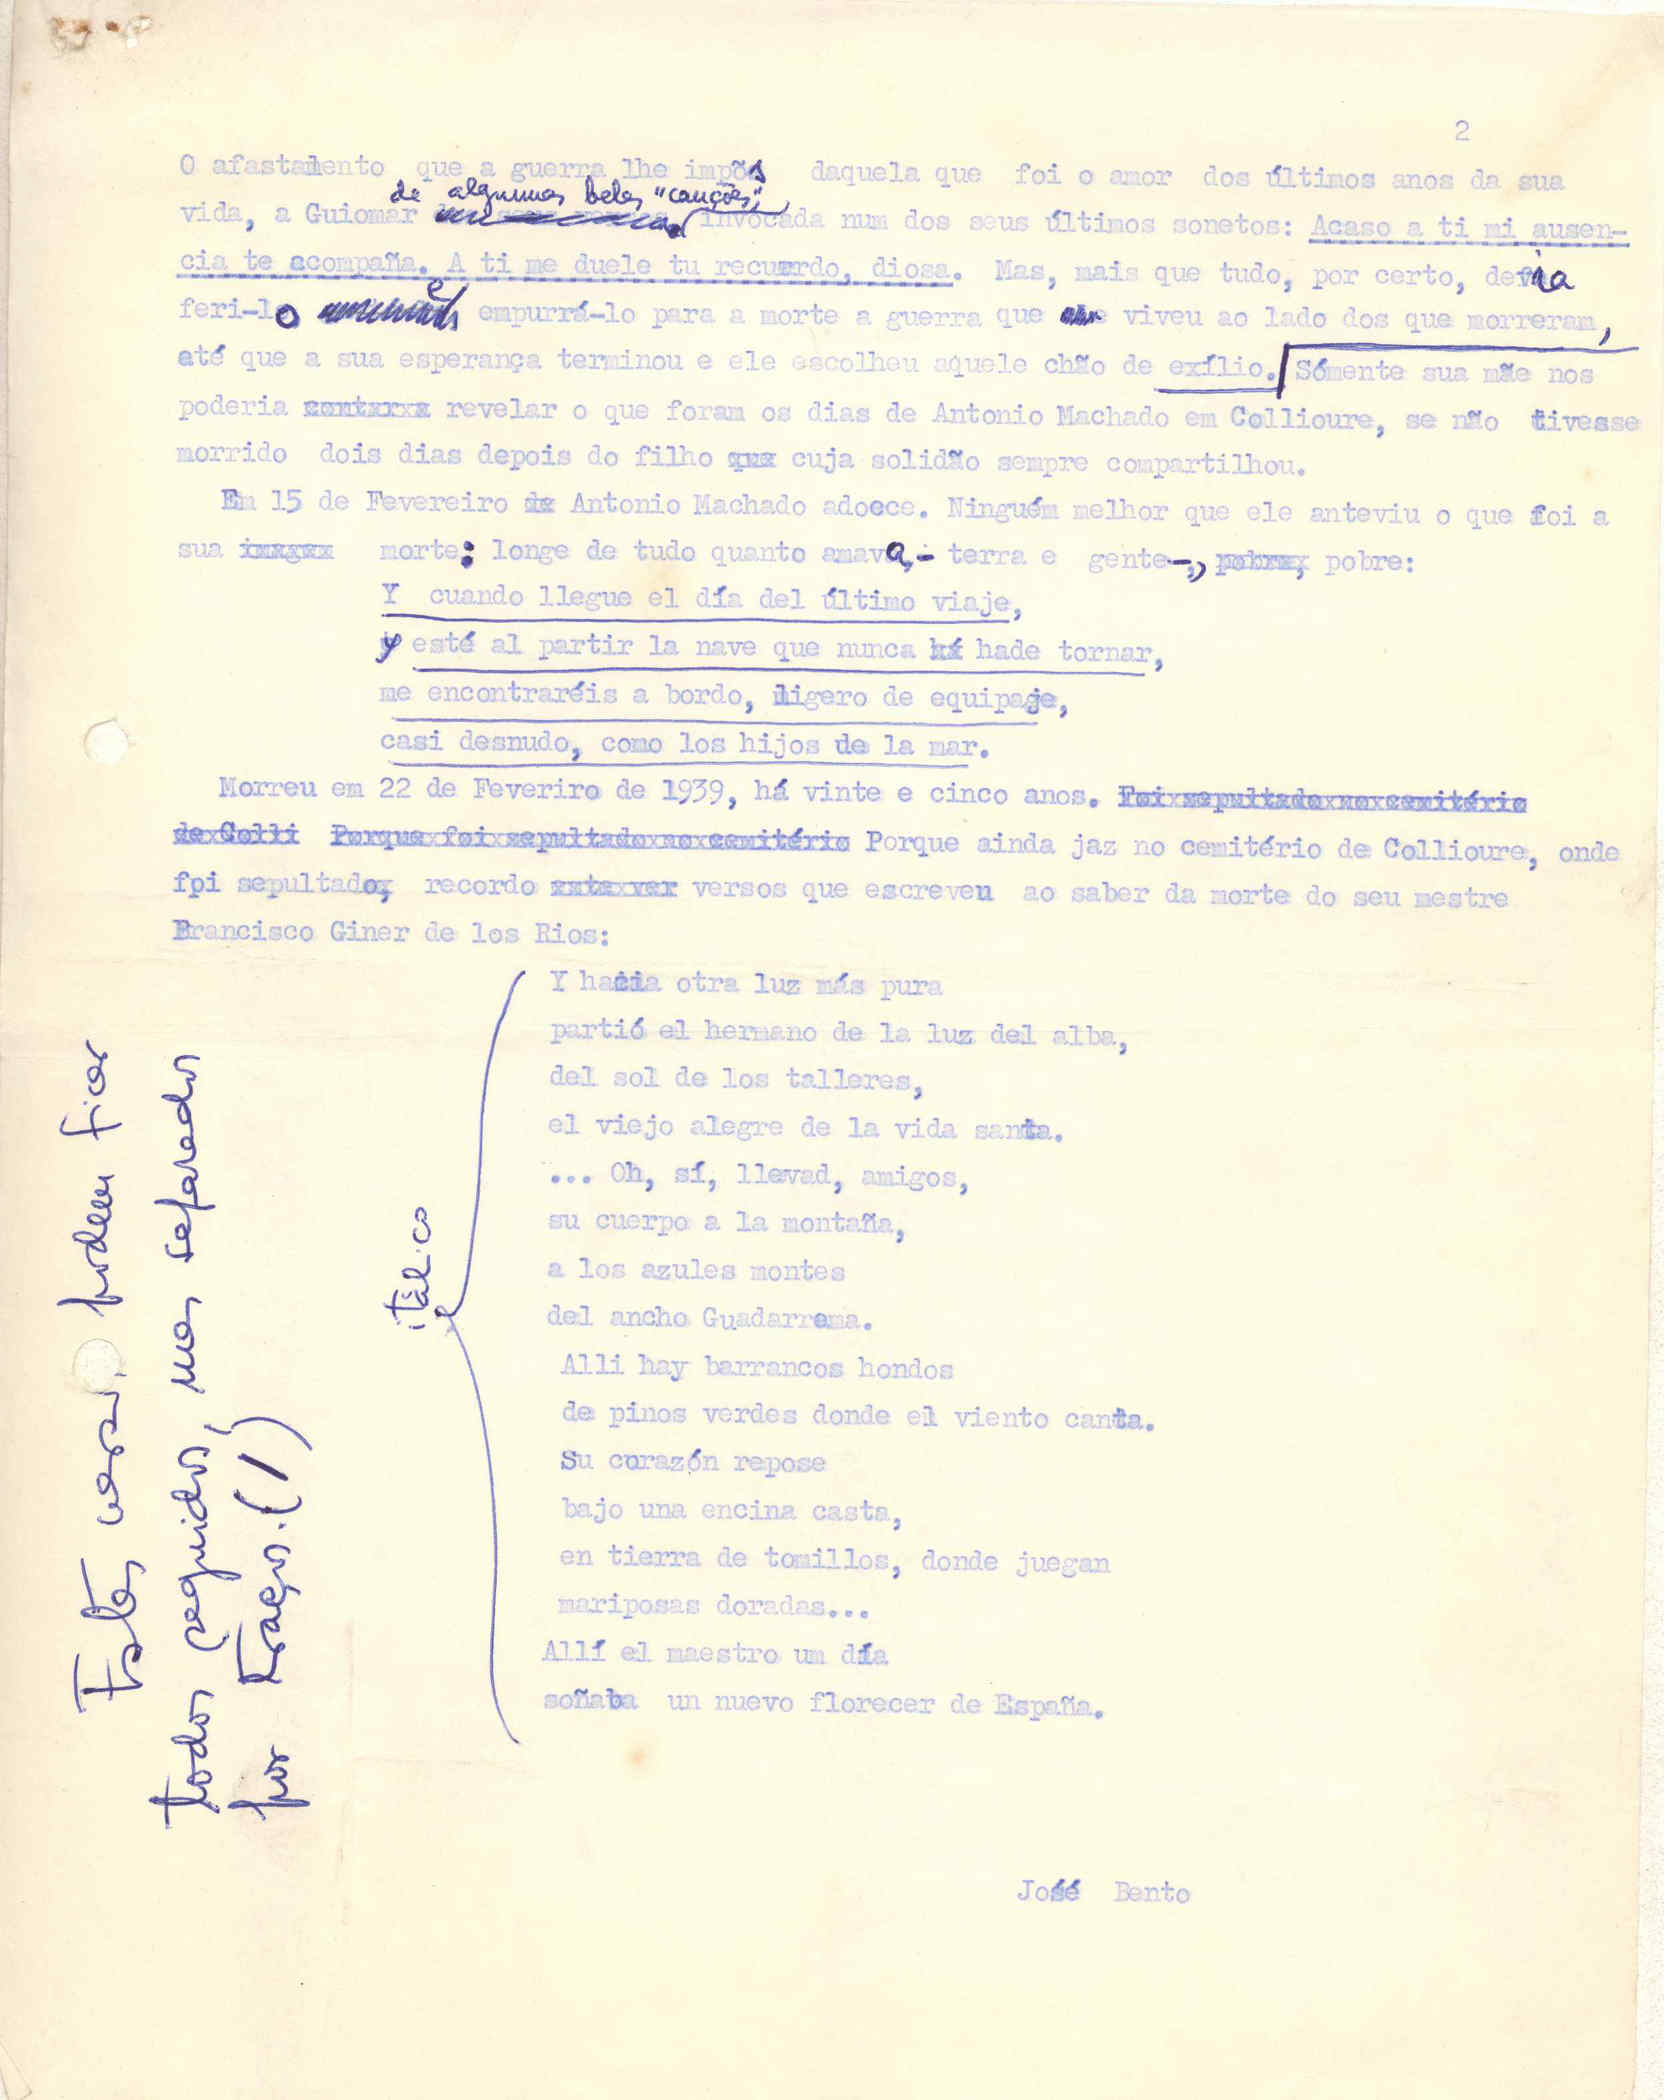 2
O afastamento que a guerra lhe impôs daquela que foi o amor dos últimos anos da sua
de algumas belas "canções",
vida, a Guiomar invocada num dos seus últimos sonetos: Acaso a ti mi ausen-
cia te acompaña. A ti me duele tu recuerdo, diosa. Mas, mais que tudo, por certo, devia
feri-lo e empurrá-lo para a morte a guerra que viveu ao lado dos que morreram,
até que a sua esperança terminou e ele escolheu aquele chão de exílio. Sómente sua mãe nos
poderia revelar o que foram os dias de Antonio Machado em Collioure, se não tivesse
morrido dois dias depois do filho cuja solidão sempre compartilhou.
Em 15 de Fevereiro de Antonio Machado adoece. Ninguém melhor que ele anteviu o que foi a
sua imagem morte: longe de tudo quanto amava,- terra e gente-, pobre, pobre:
Y cuando llegue el día del último viaje,
y esté al partir la nave que nunca há hade tornar,
me encontraréis a bordo, ligero de equipaje,
casi desnudo, como los hijos de la mar.
Morreu em 22 de Feveriro de 1939, há vinte e cinco anos. Foi sepultado no cemitério
de Colli Porque foi sepultado no cemitério Porque ainda jaz no cemitério de Collioure, onde
foi sepultado, recordo versos que escreveu ao saber da morte do seu mestre
Francisco Giner de los Rios:
Y hacia otra luz más pura
partió el hermano de la luz del alba,
del sol de los talleres,
el viejo alegre de la vida santa.
... Oh, sí, llevad, amigos,
su cuerpo a la montaña,
a los azules montes
del ancho Guadarrama.
Alli hay barrancos hondos
de pinos verdes donde el viento canta.
Su corazón repose
bajo una encina casta,
en tierra de tomillos, donde juegan
mariposas doradas...
Allí el maestro um día
soñaba un nuevo florecer de España.
itálico
Estes versos podem ficar
todos seguidos, mas separados
por traços.(/)
José Bento